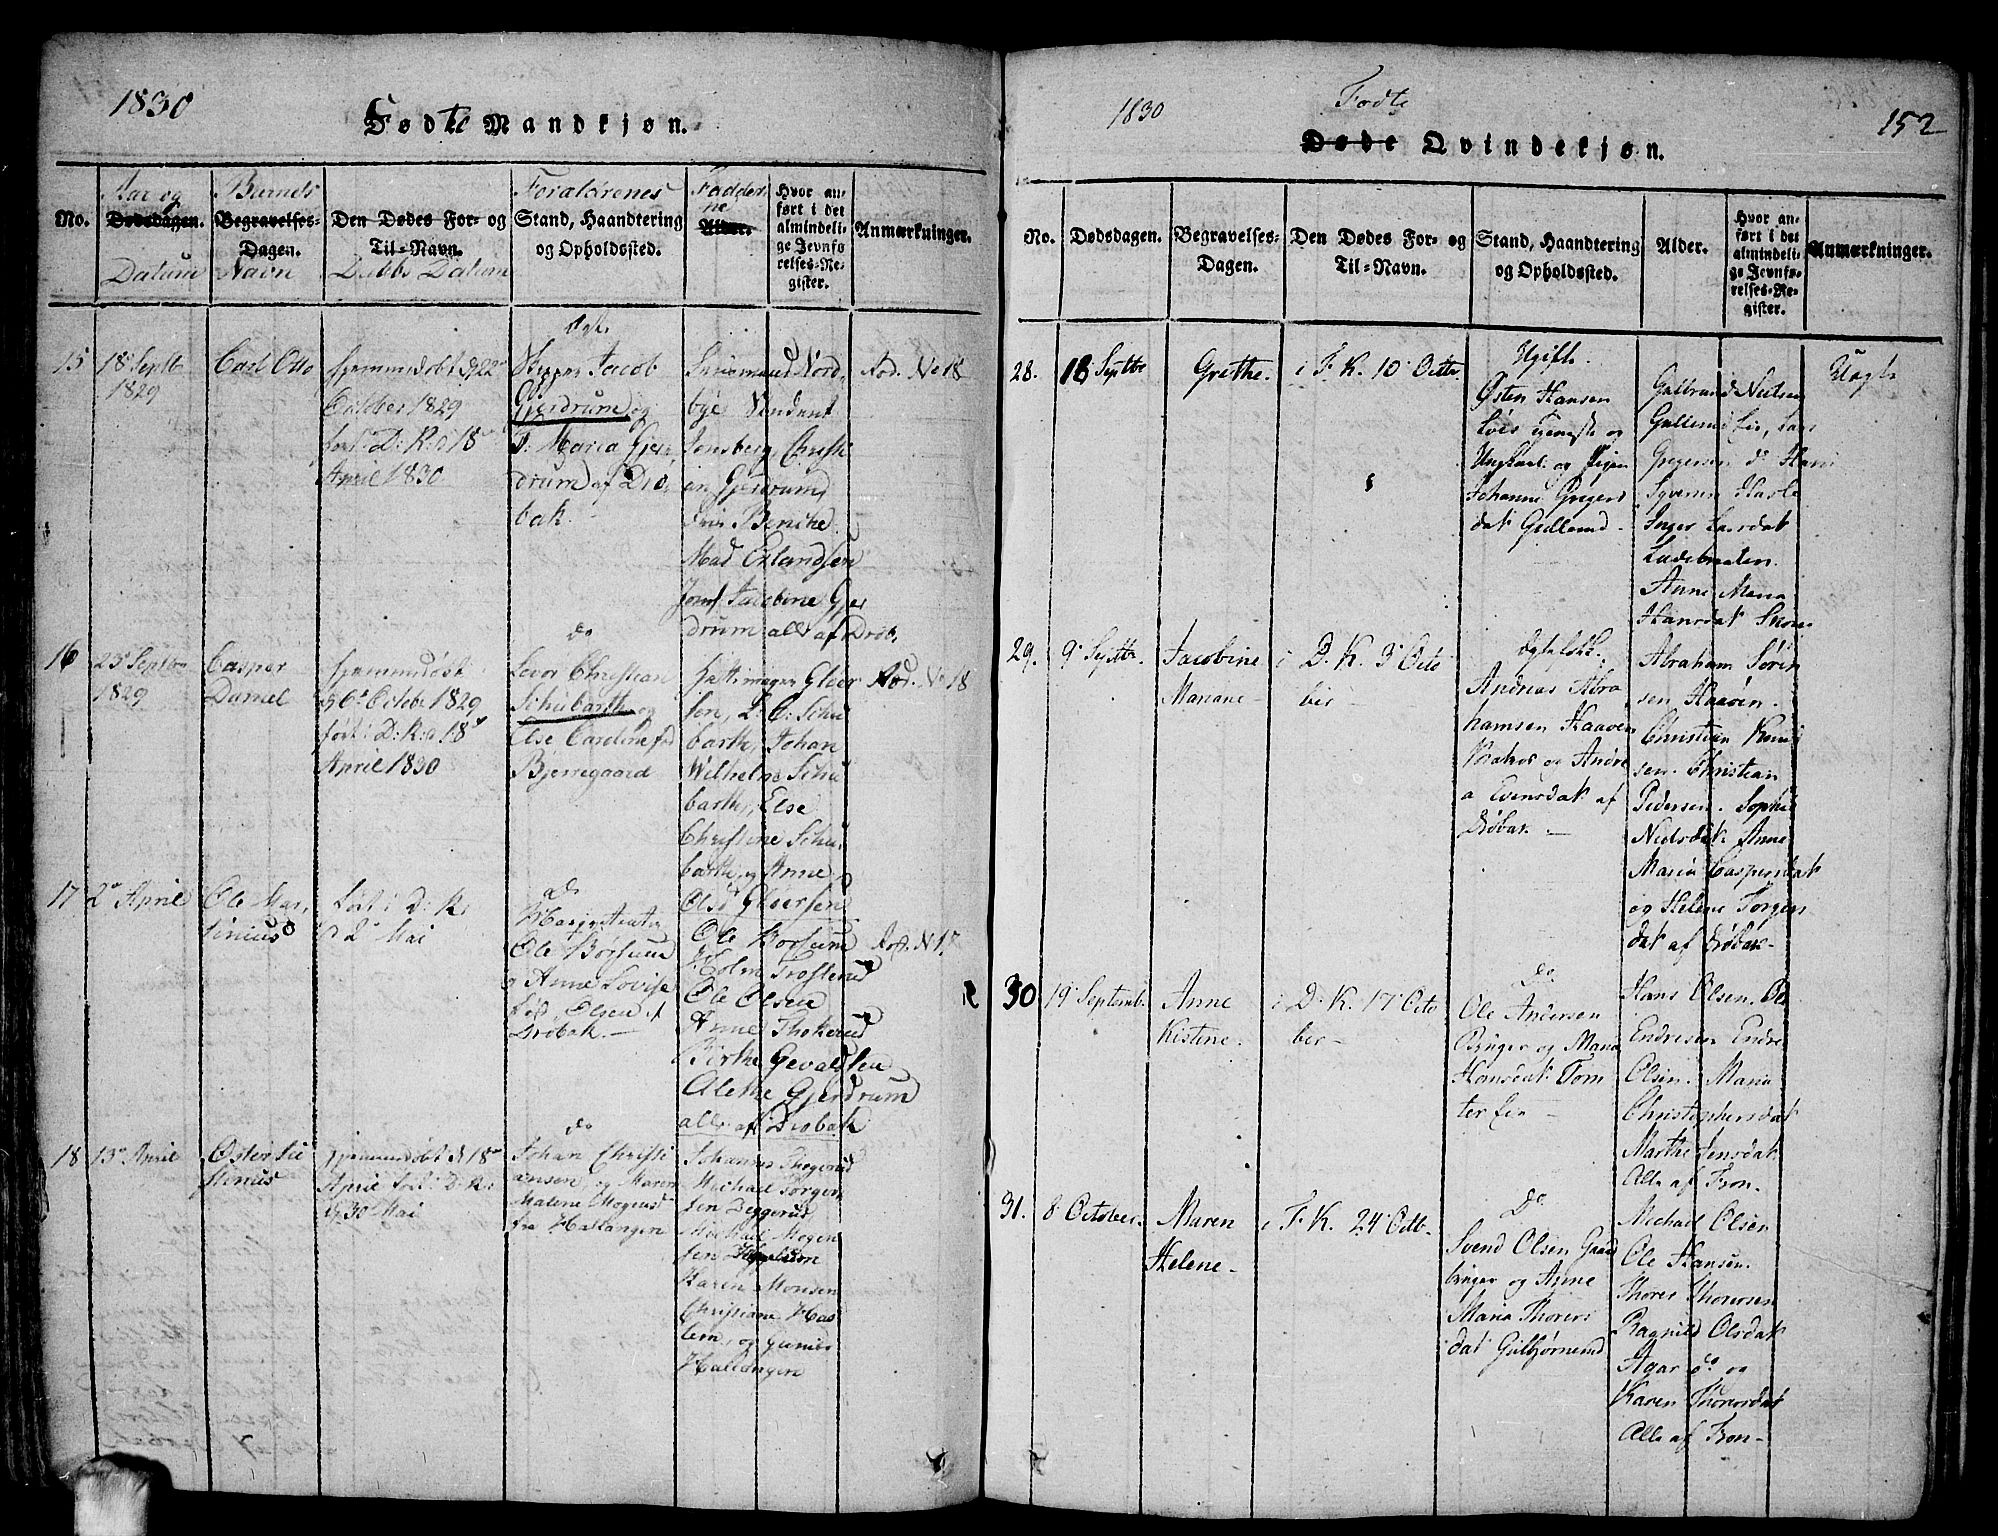 1830
Fødte Mandkjøn.
No.
Aar og
Dødsdagen.
Datum
Barnets
Begravelses-
Dagen.
Navn
Den Dødes For- og
Til-Navn.
Daabs Datum
Forældrenes
Stand, Haandtering
og Opholdssted.
Fadder
ne
Alder.
Hvor an-
ført i det
almindeli-
ge Jevnfø-
relses-Re-
gister.
Anmærkninger.
15
18 Septb
1829
Carl Otto
hjemmedøbt d 22
October 1829
først i D: K: d 18
April 1830
Skipper Jacob
Gjerdrum og
Maria Gjer-
drum af Drø-
bak.
Nord-
bye, Student
Jonsberg, Christi
an Gjerdrum
Bencke
Mad Erlandsen
Jomf Jacobine Gjer
drum alle af Drøb.
No 18
16
23 Septbr
1829
Casper
Daniel
hjemmedøbt
d 6 Octobr 1829
først i D: K: d 18
April 1830
do
Christian
Schubarth og
Else Cardine fød
Bjerregaard
Gløer
sen, L: C: Schu
barth, Johan
Wilhelm Schu
barth, Else
Christine Schu-
barth, og Anne
Olsd Gløersen
No 18
17
2 April
Ole Mar-
tinius
først i D: K:
d 2 Mai
do
Ole Borsum
og Anne Lovise
fød Olsen af
Drøbak.
Ole Borsum
Holm Trosterud
Ole Olsen
Anne Thokerud
Birthe Gevaldsen
Alethe Gjerdrum
alle af Drøbak
No 17
18
13 April
Hjemmedøbt d 18
April først i D: K:
d 30 Mai
do
Johan Christi
ansen, og Maren
Malene Mogensd
fra Hallangen
Johannes Skogerud
Michael Jørgen
sen Deggerud
Michael Mogen
sen
Karen Monsen
Christiane Has
lem, og Gunild
Hallangen
1830
Fødte
152
Døde Qvindekjøn.
No.
Dødsdagen.
Begravelses-
Dagen.
Den Dødes For- og
Til-Navn.
Stand, Haandtering
og Opholdssted.
Alder.
Hvor an-
ført i det
almindeli-
ge Jevnfø-
relses-Re-
gister.
Anmærkninger.
28.
18 Septbr
Grethe.
i F. K. 10 Octbr
Ugifte
Østen Hansen
tjeneste og
Ungkarl og Pigen
Johanne Gregers
dat Gullerud
Gulbrand Nielsen
Gullerud Eie, Lars
Gregersen do Hans
Syversen Hasle
Inger Larsdat
Ladebraaten.
Anne Maria
Hansdat
Uægte
29.
9 Septbr
Jacobine
Mariane
i D. K. 3 Octo
ber
Ægtefolk.
Andreas Abra
hamsen Haaven
Matros og Andre
a Evensdat af
Drøbak
Abraham Søren
sen Haaven.
Christian
sen. Christian
Pedersen. Sophie
Nielsdat. Anne
Maria Caspersdat
og Helene Jørgens
dat af Drøbak
30
19 Septemb
Anne
Kistine.
i D. K. 17 Octo
ber
do
Ole Andersen
Bruger og Maria
Hansdat Tom
ter Eie
Hans Olsen. Ole
Endresen Endre
Olsen. Maria
Christophersdat
Marthe Jensdat
Alle af Fron
31.
8 October.
Maren
Helene
i F. K. 24 Octb.
do
Svend Olsen Gaard
bruger og Anne
Maria Thorers
dat Gulbjørnerud
Michael Olsen
Ole Hansen.
Thorer Thorersen
Ragnild Olsdat
Agar do og
Karen Thorersdat
Alle af Fron